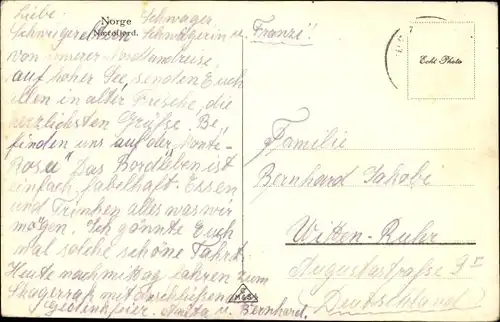 Norge
Nordfjord.
Liebe Schwager,
Schwiegereltern Schwägerin u. Franzi!
von unserer Nordlandreise,
auf hoher See, senden Euch
allen in alter Frische, die
herzlichsten Grüsse. Be,
finden uns auf der Monte-
Rosa" Das Bordleben ist
einfach fabelhaft. Essen
und Trinken alles was wir
mögen. Ich gönnte Euch
mal solche schöne Fahrt
Heute nachmittag fahren zum
Skagerrak mit Anschließen
Gedenkfeier. Anita u. Bernhard.
Echt Photo
Familie
Bernhard Jakobi
Witten-Ruhr
Augustastraße 9
(Deutschland)